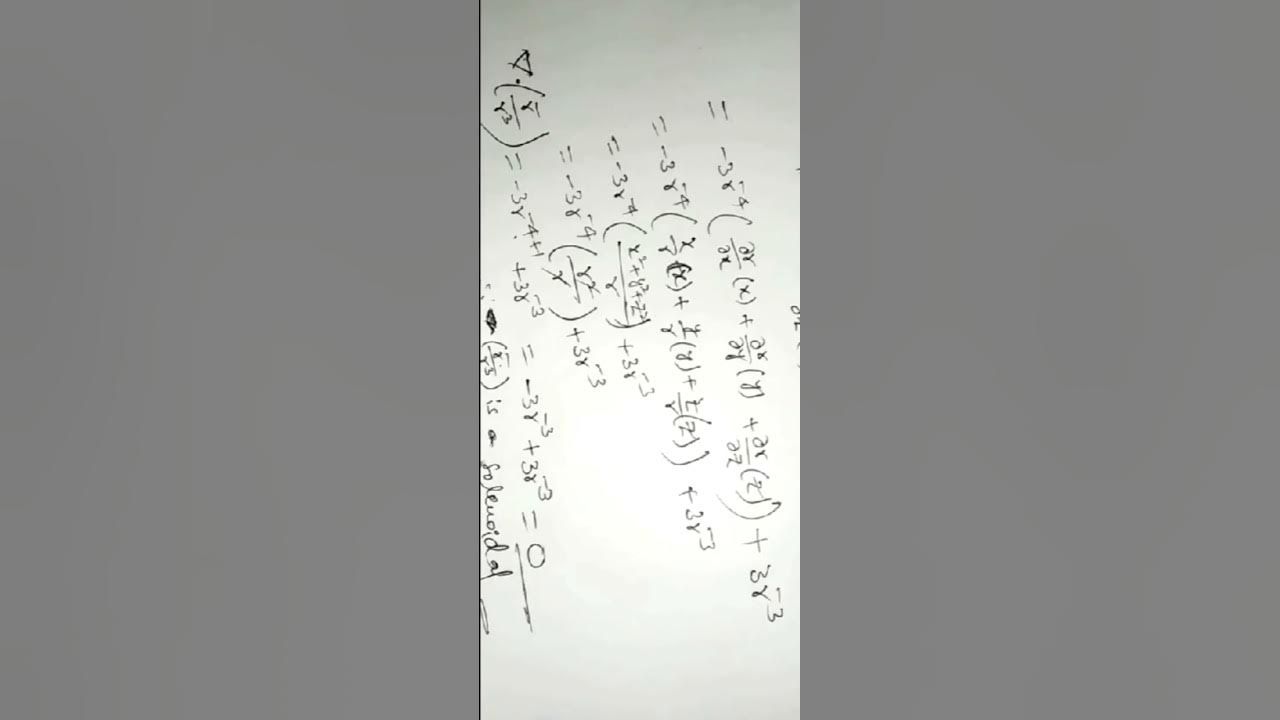 = -3r⁻⁴ ( ∂r/∂x (x) + ∂r/∂y (y) + ∂r/∂z (z) ) + 3r⁻³
= -3r⁻⁴ ( x/r (x) + y/r (y) + z/r (z) ) + 3r⁻³
= -3r⁻⁴ ( x²+y²+z² / r ) + 3r⁻³
= -3r⁻⁴ ( r² / r ) + 3r⁻³
∇·( r̄/r³ ) = -3r⁻⁴⁺¹ + 3r⁻³ = -3r⁻³ + 3r⁻³ = 0
∴ ( r̄/r³ ) is a Solenoidal